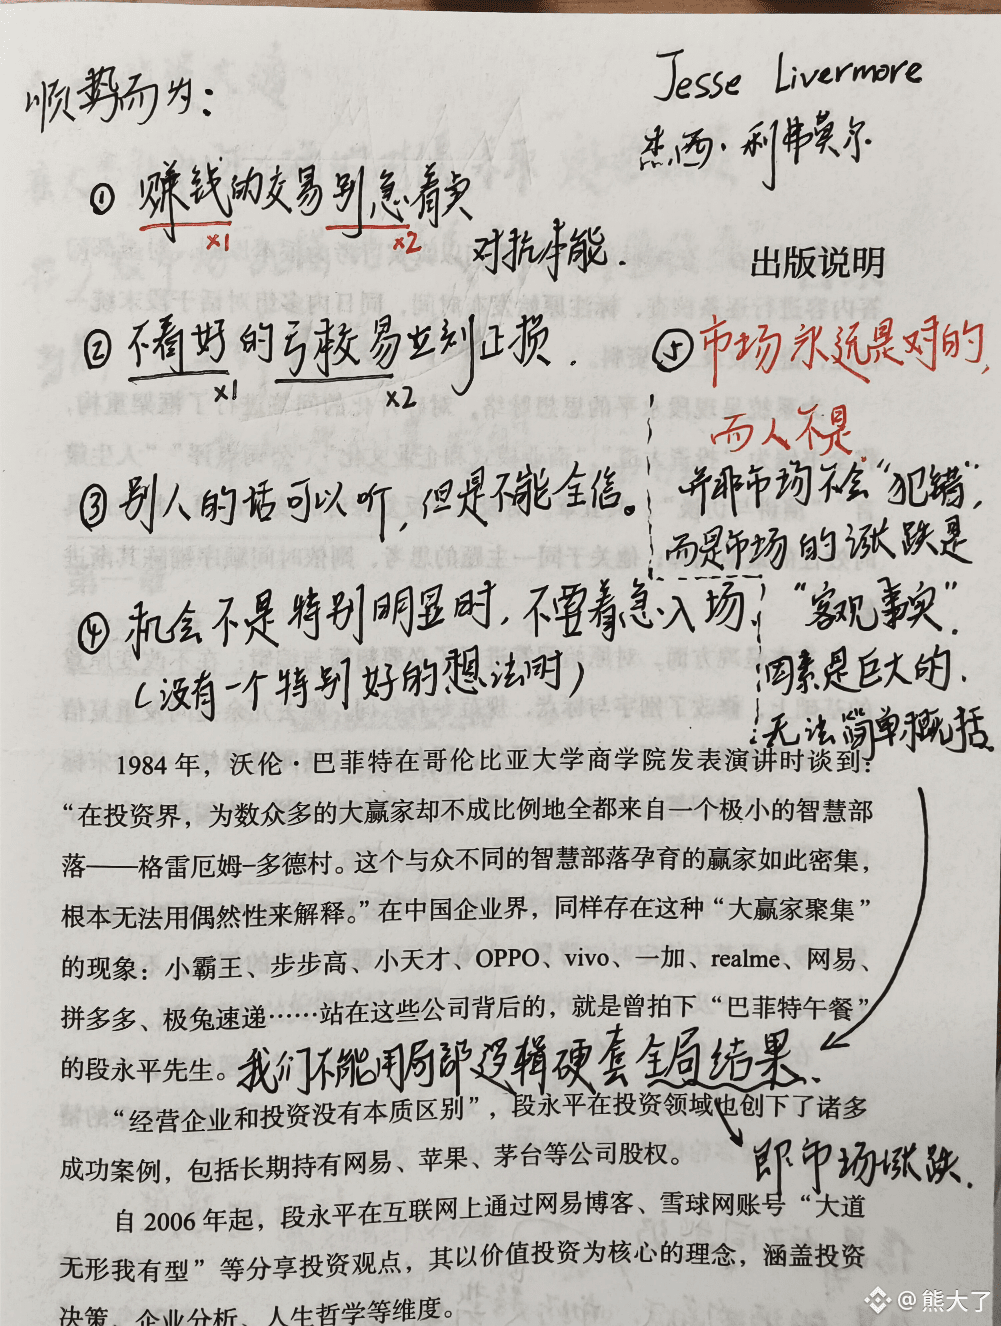 顺势而为:
Jesse Livermore
杰西·利弗莫尔
① 赚钱的交易别急着卖
x1 x2
对抗本能.
出版说明
② 不看好的亏损交易立刻止损.
x1 x2
③ 别人的话可以听,但是不能全信。
④ 机会不是特别明显时,不要着急入场
(没有一个特别好的想法时)
⑤ 市场永远是对的,
而人不是.
并非市场不会“犯错”,
而是市场的涨跌是
“客观事实”.
因素是巨大的.
无法简单概括.
1984 年,沃伦·巴菲特在哥伦比亚大学商学院发表演讲时谈到:
“在投资界,为数众多的大赢家却不成比例地全都来自一个极小的智慧部
落——格雷厄姆–多德村。这个与众不同的智慧部落孕育的赢家如此密集,
根本无法用偶然性来解释。”在中国企业界,同样存在这种“大赢家聚集”
的现象:小霸王、步步高、小天才、OPPO、vivo、一加、realme、网易、
拼多多、极兔速递……站在这些公司背后的,就是曾拍下“巴菲特午餐”
的段永平先生。
我们不能用局部逻辑硬套全局结果.
“经营企业和投资没有本质区别”,段永平在投资领域也创下了诸多
成功案例,包括长期持有网易、苹果、茅台等公司股权。
即市场涨跌.
自 2006 年起,段永平在互联网上通过网易博客、雪球网账号“大道
无形我有型”等分享投资观点,其以价值投资为核心的理念,涵盖投资
决策、企业分析、人生哲学等维度。
@熊大了